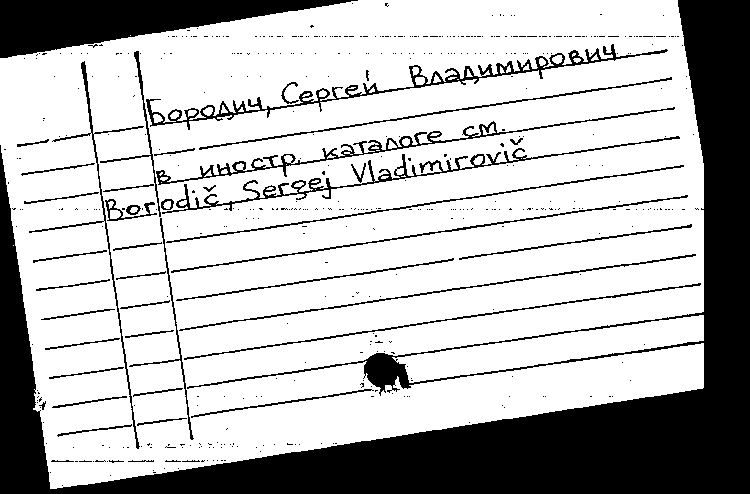 Бородич, Сергей Владимирович
в иностр. каталоге см.
Borodič, Sergej Vladimirovič